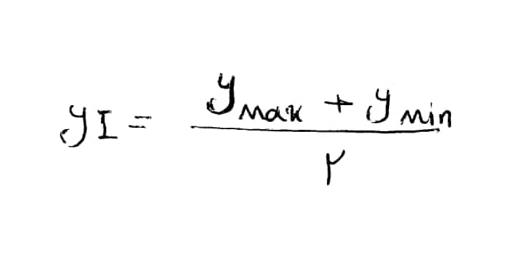 yI = (y max + y min) / ۲